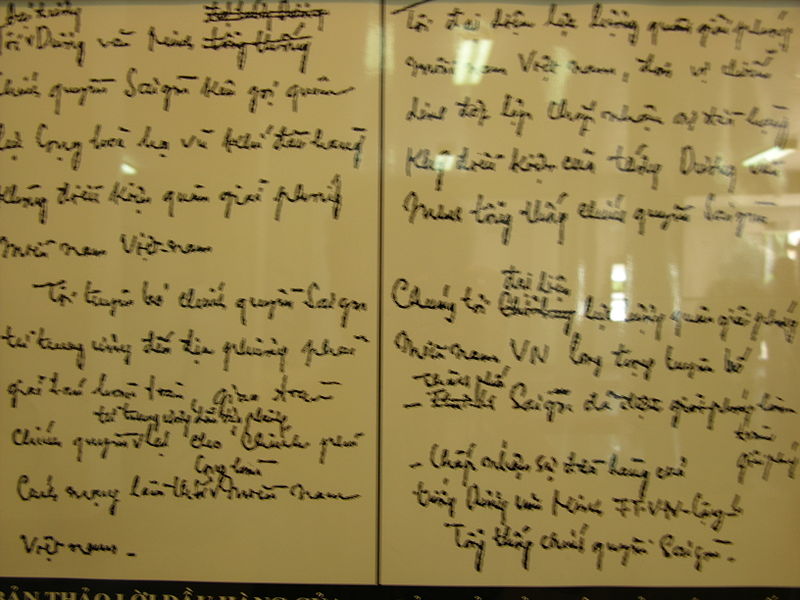 đại tướng
Tôi Dương văn Minh tổng thống
chính quyền Sài gòn kêu gọi quân
lực Cộng hoà hạ vũ khí đầu hàng
không điều kiện quân giải phóng
miền nam Việt-nam
Tôi tuyên bố chính quyền Saigon
từ trung ương đến địa phương phải
giải tán hoàn toàn, giao toàn
từ trung ương đến địa phương
chính quyền lại cho chính phủ
Cộng hoà
Cách mạng lâm thời miền nam
Việt nam -
Tôi đại diện lực lượng quân giải phóng
miền nam Việt nam,
chấp nhận sự đầu hàng
không điều kiện của tướng Dương văn
Minh tổng thống chính quyền Saigòn
đại diện
Chúng tôi lực lượng quân giải phóng
miền nam VN long trọng tuyên bố
thành phố
- Saigòn đã được giải phóng hoàn
toàn
- Chấp nhận sự đầu hàng của
giải phóng
tướng Dương văn Minh
Tổng thống chính quyền Saigòn.
BẢN THẢO LỜI ĐẦU HÀNG CỦA